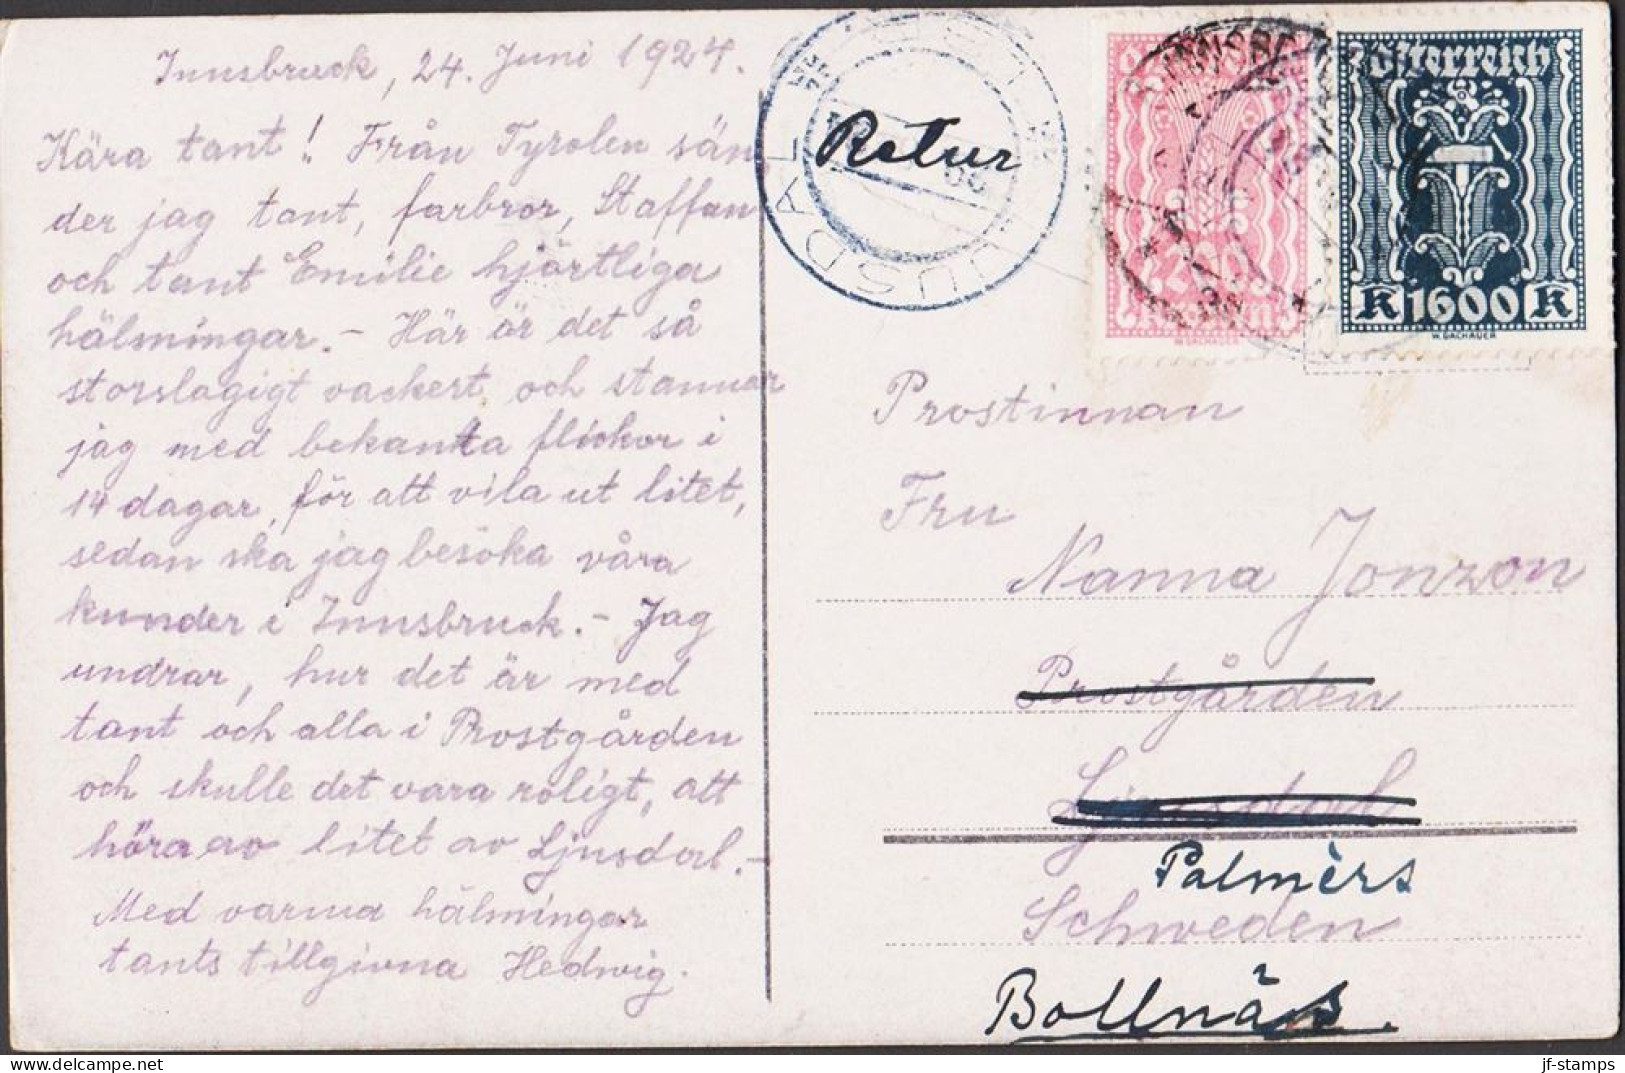 Innsbruck, 24. Juni 1924.
Kära tant! Från Tyrolen sän
der jag tant, farbror, Staffan
och tant Emilie hjärtliga
hälmingar. – Här är det så
storslagigt vackert och stannar
jag med bekanta flickor i
14 dagar, för att vila ut litet,
sedan ska jag besöka våra
kunder i Innsbruck. – Jag
undrar, hur det är med
tant och alla i Prostgården
och skulle det vara roligt, att
höra av litet av Ljusdal. –
Med varma hälmingar
tants tillgivna Hedwig.
Retur
LJUSDAL
Österreich
K 1600 K
W. DACHAUER
W. DACHAUER
Prostinnan
Fru
Nanna Jonzon
Prostgården
Ljusdal
Palmèrs
Schweden
Bollnäs.
delcampe.net
jf-stamps